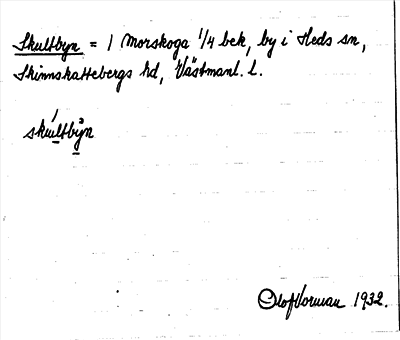 Skultbyn = 1 Morskoga 1/4 bek, by i Heds sn,
Skinnskattebergs hd, Västmanl. l.
skúltbyn
Olof Vorman 1932.